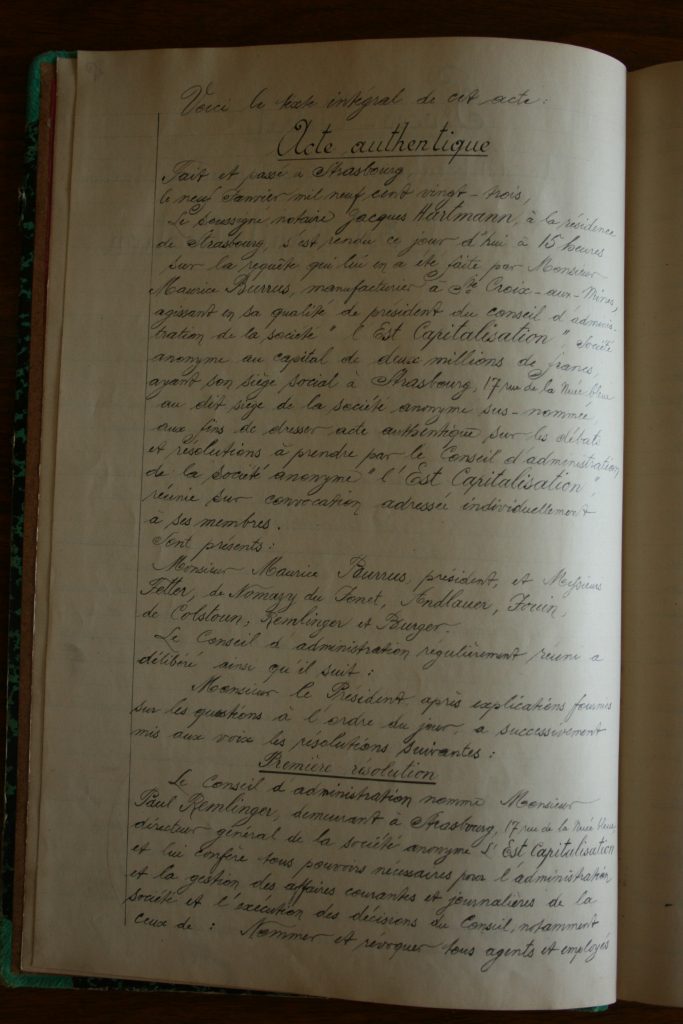 Voici le texte intégral de cet acte :
Acte authentique
Fait et passé à Strasbourg,
le neuf Janvier mil neuf cent vingt-trois,
Le soussigné notaire Jacques Hartmann, à la résidence
de Strasbourg, s'est rendu ce jour d'hui à 15 heures
sur la requête qui lui en a été faite par Monsieur
Maurice Burrus, manufacturier à Ste Croix-aux-Mines,
agissant en sa qualité de président du conseil d'adminis-
tration de la société "l'Est Capitalisation", Société
anonyme au capital de deux millions de francs,
ayant son siège social à Strasbourg, 17 rue de la Nuée bleue
au dit siège de la société anonyme sus-nommée,
aux fins de dresser acte authentique sur les débats
et résolutions à prendre par le Conseil d'administration
de la société anonyme "l'Est Capitalisation",
réunie sur convocation adressée individuellement
à ses membres.
Sont présents :
Monsieur Maurice Burrus, président, et Messieurs
Fetter, de Nomazy du Andlauer, Jouin,
de Colstoun, Remlinger et Burger.
Le Conseil d'administration régulièrement réuni a
délibéré ainsi qu'il suit :
Monsieur le Président, après explications fournies
sur les questions à l'ordre du jour, a successivement
mis aux voix les résolutions suivantes :
Première résolution
Le Conseil d'administration nomme Monsieur
Paul Remlinger, demeurant à Strasbourg, 17 rue de la Nuée bleue,
directeur général de la société anonyme L'Est Capitalisation
et lui confère tous pouvoirs nécessaires pour l'administration
et la gestion des affaires courantes et journalières de la
société et l'exécution des décisions du Conseil, notamment
ceux de : Nommer et révoquer tous agents et employés